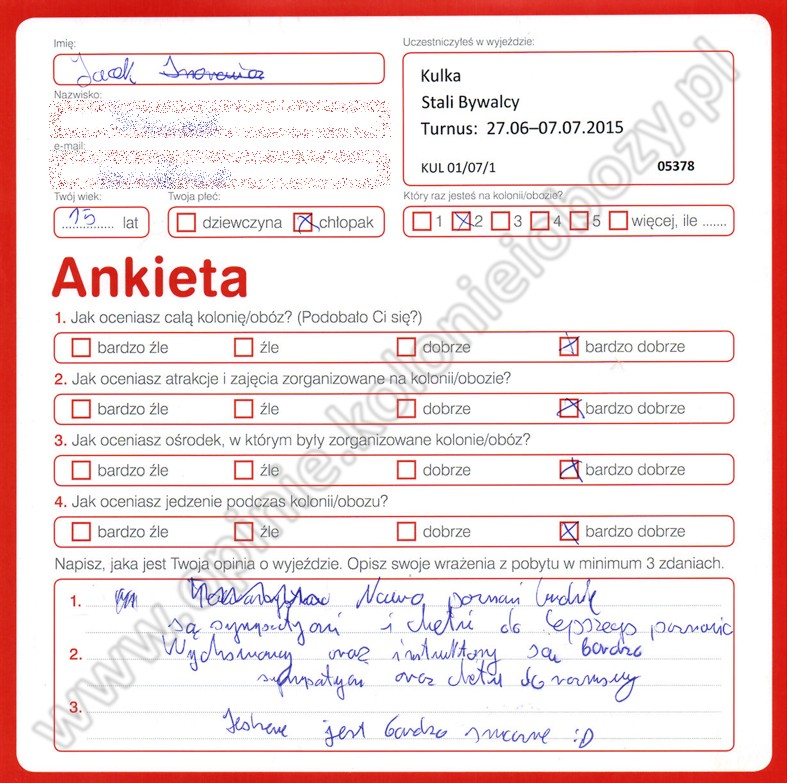 Imię:
Jacek
Uczestniczyłeś w wyjeździe:
Kulka
Stali Bywalcy
Turnus: 27.06–07.07.2015
KUL 01/07/1 05378
Nazwisko:
e-mail:
Twój wiek:
15 lat
Twoja płeć:
dziewczyna chłopak
Który raz jesteś na kolonii/obozie?
1 2 3 4 5 więcej, ile .......
Ankieta
1. Jak oceniasz całą kolonię/obóz? (Podobało Ci się?)
bardzo źle źle dobrze bardzo dobrze
2. Jak oceniasz atrakcje i zajęcia zorganizowane na kolonii/obozie?
bardzo źle źle dobrze bardzo dobrze
3. Jak oceniasz ośrodek, w którym były zorganizowane kolonie/obóz?
bardzo źle źle dobrze bardzo dobrze
4. Jak oceniasz jedzenie podczas kolonii/obozu?
bardzo źle źle dobrze bardzo dobrze
Napisz, jaka jest Twoja opinia o wyjeździe. Opisz swoje wrażenia z pobytu w minimum 3 zdaniach.
1. Nowo
są i chętni do lepszego
2. Wychowawcy oraz są bardzo
oraz chętni do rozmowy
3.
jest bardzo smaczne :D
www.opinie.kolonieiobozy.pl